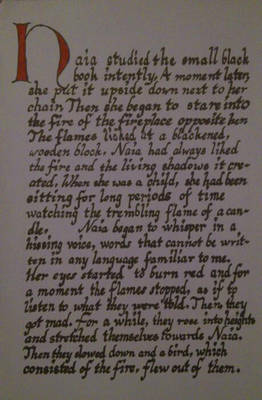 Naia studied the small black
book intently. A moment later,
she put it upside down next to her
chair. Then she began to stare into
the fire of the fireplace opposite her.
The flames licked at a blackened,
wooden block. Naia had always liked
the fire and the living shadows it cre-
ated. When she was a child, she had been
sitting for long periods of time
watching the trembling flame of a can-
dle. Naia began to whisper in a
hissing voice, words that cannot be writ-
ten in any language familiar to me.
Her eyes started to burn red and for
a moment the flames stopped, as if to
listen to what they were told. Then, they
got mad. For a while, they rose into heights
and stretched themselves towards Naia.
Then they slowed down and a bird, which
consisted of the fire, flew out of them.